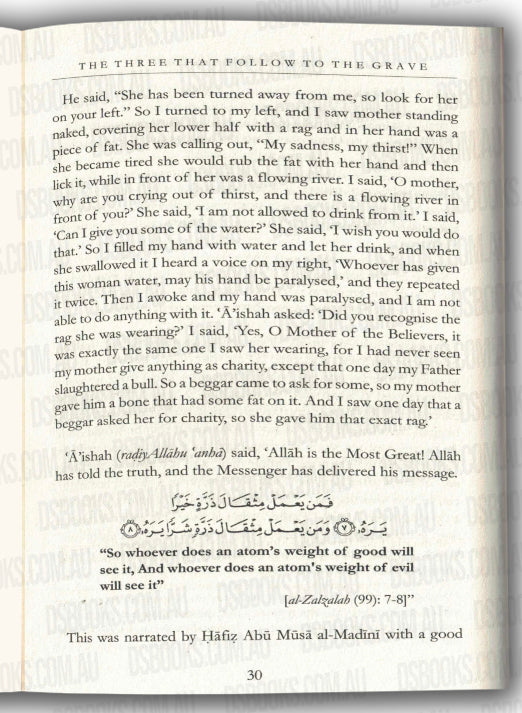 THE THREE THAT FOLLOW TO THE GRAVE
He said, “She has been turned away from me, so look for her
on your left.” So I turned to my left, and I saw mother standing
naked, covering her lower half with a rag and in her hand was a
piece of fat. She was calling out, “My sadness, my thirst!” When
she became tired she would rub the fat with her hand and then
lick it, while in front of her was a flowing river. I said, ‘O mother,
why are you crying out of thirst, and there is a flowing river in
front of you?’ She said, ‘I am not allowed to drink from it.’ I said,
‘Can I give you some of the water?’ She said, ‘I wish you would do
that.’ So I filled my hand with water and let her drink, and when
she swallowed it I heard a voice on my right, ‘Whoever has given
this woman water, may his hand be paralysed,’ and they repeated
it twice. Then I awoke and my hand was paralysed, and I am not
able to do anything with it. ‘Ā’ishah asked: ‘Did you recognise the
rag she was wearing?’ I said, ‘Yes, O Mother of the Believers, it
was exactly the same one I saw her wearing, for I had never seen
my mother give anything as charity, except that one day my Father
slaughtered a bull. So a beggar came to ask for some, so my mother
gave him a bone that had some fat on it. And I saw one day that a
beggar asked her for charity, so she gave him that exact rag.’
‘Ā’ishah (raḍiyAllāhu ‘anha) said, ‘Allāh is the Most Great! Allāh
has told the truth, and the Messenger has delivered his message.
فَمَن يَعْمَلْ مِثْقَالَ ذَرَّةٍ خَيْرًا
يَرَهُۥ ﴿٧﴾ وَمَن يَعْمَلْ مِثْقَالَ ذَرَّةٍ شَرًّا يَرَهُۥ ﴿٨﴾
“So whoever does an atom’s weight of good will
see it, And whoever does an atom's weight of evil
will see it”
[al-Zalzalah (99): 7-8]”
This was narrated by Ḥāfiẓ Abū Mūsā al-Madīnī with a good
30
DSBOOKS.COM.AU